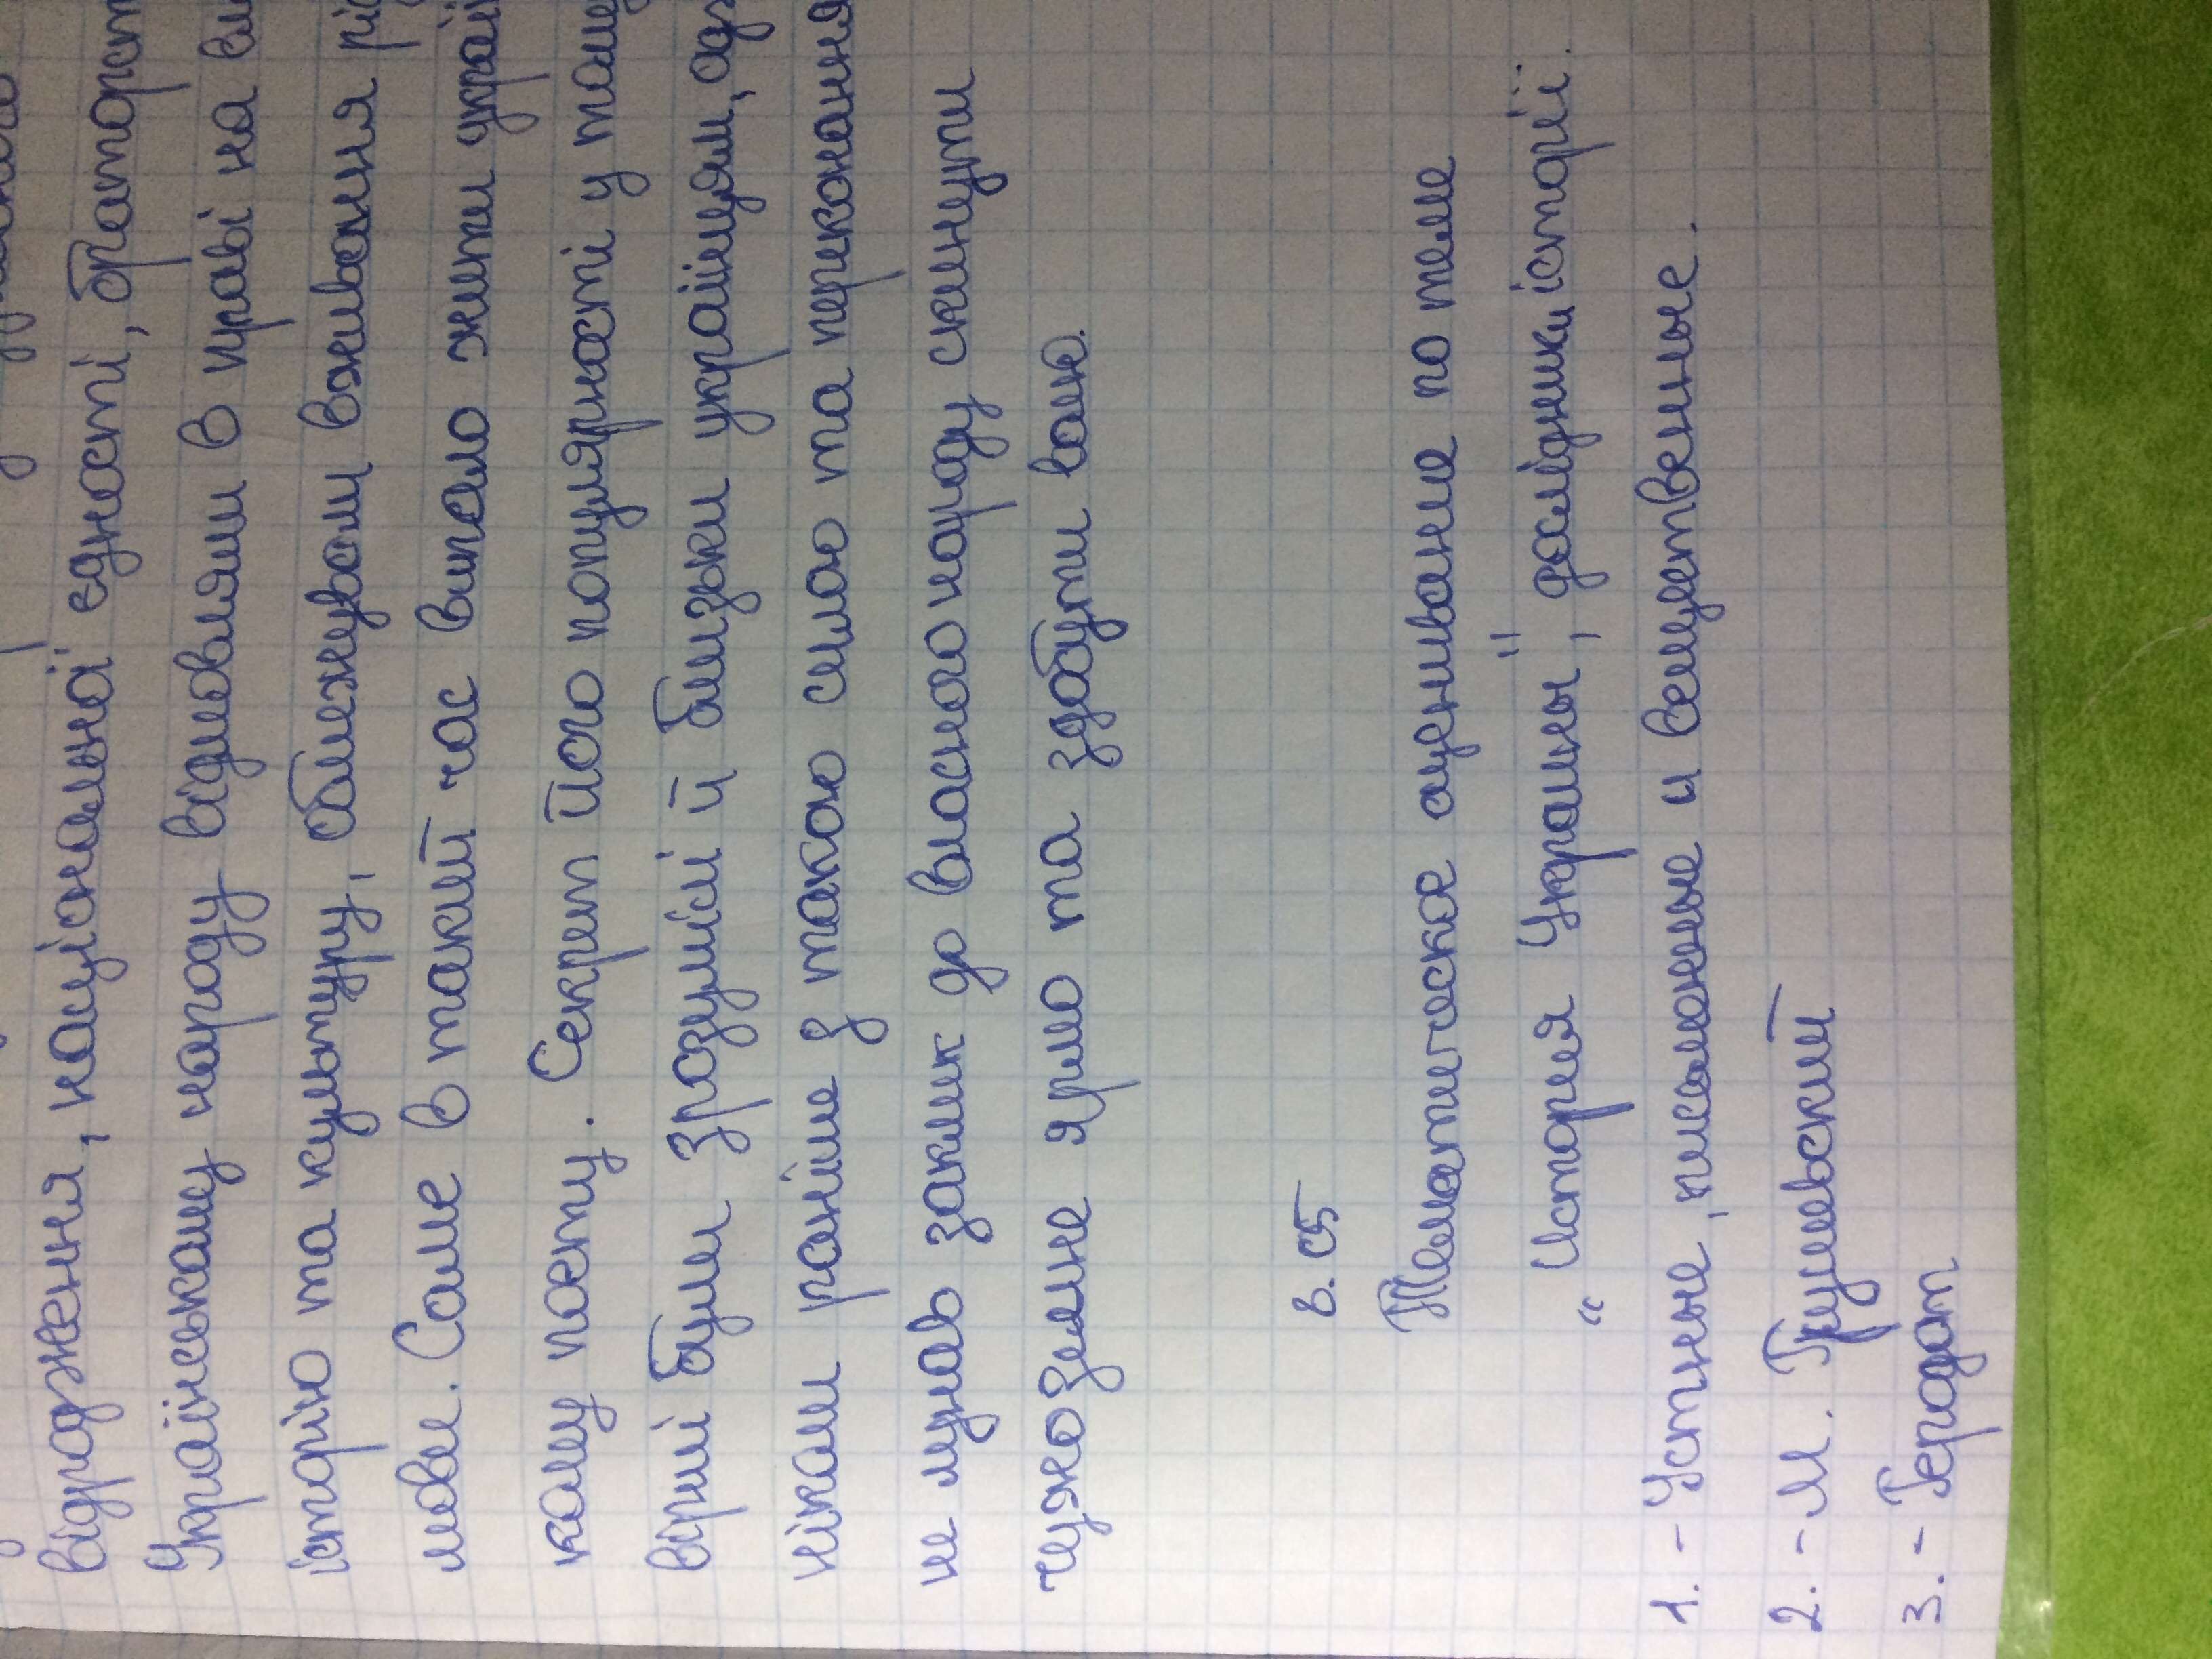 відродження, національної єдності, братерст
Українському народу відмовляли в праві на
історію та культуру, обмежували вживання рід
мови. Саме в такий час випало жити украї
кому поету. Секрет його популярності у тому
вірші були зрозумілі й близьки українцям, адж
ніколи раніше з такою силою та переконання
не лунав заклик до власного народу скинути
чужоземне ярмо та здобути волю.
8.05
Тематическое оценивание по теме
"История Украины", дослідники історії.
1. - Устные, письменные и вещественные.
2. - М. Грушевский
3. - Геродот